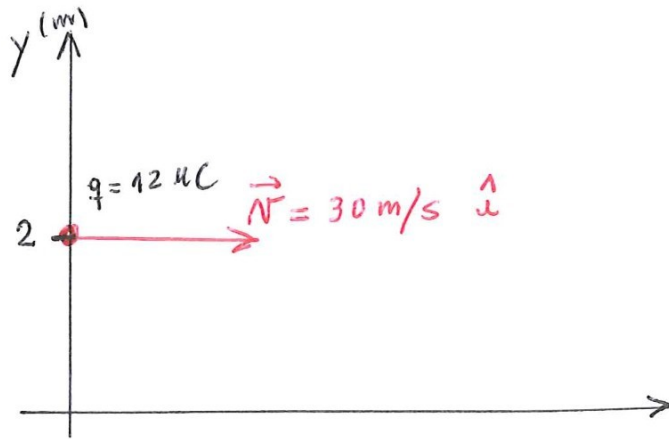 y (m)
q = 12 μC
v⃗ = 30 m/s î
2